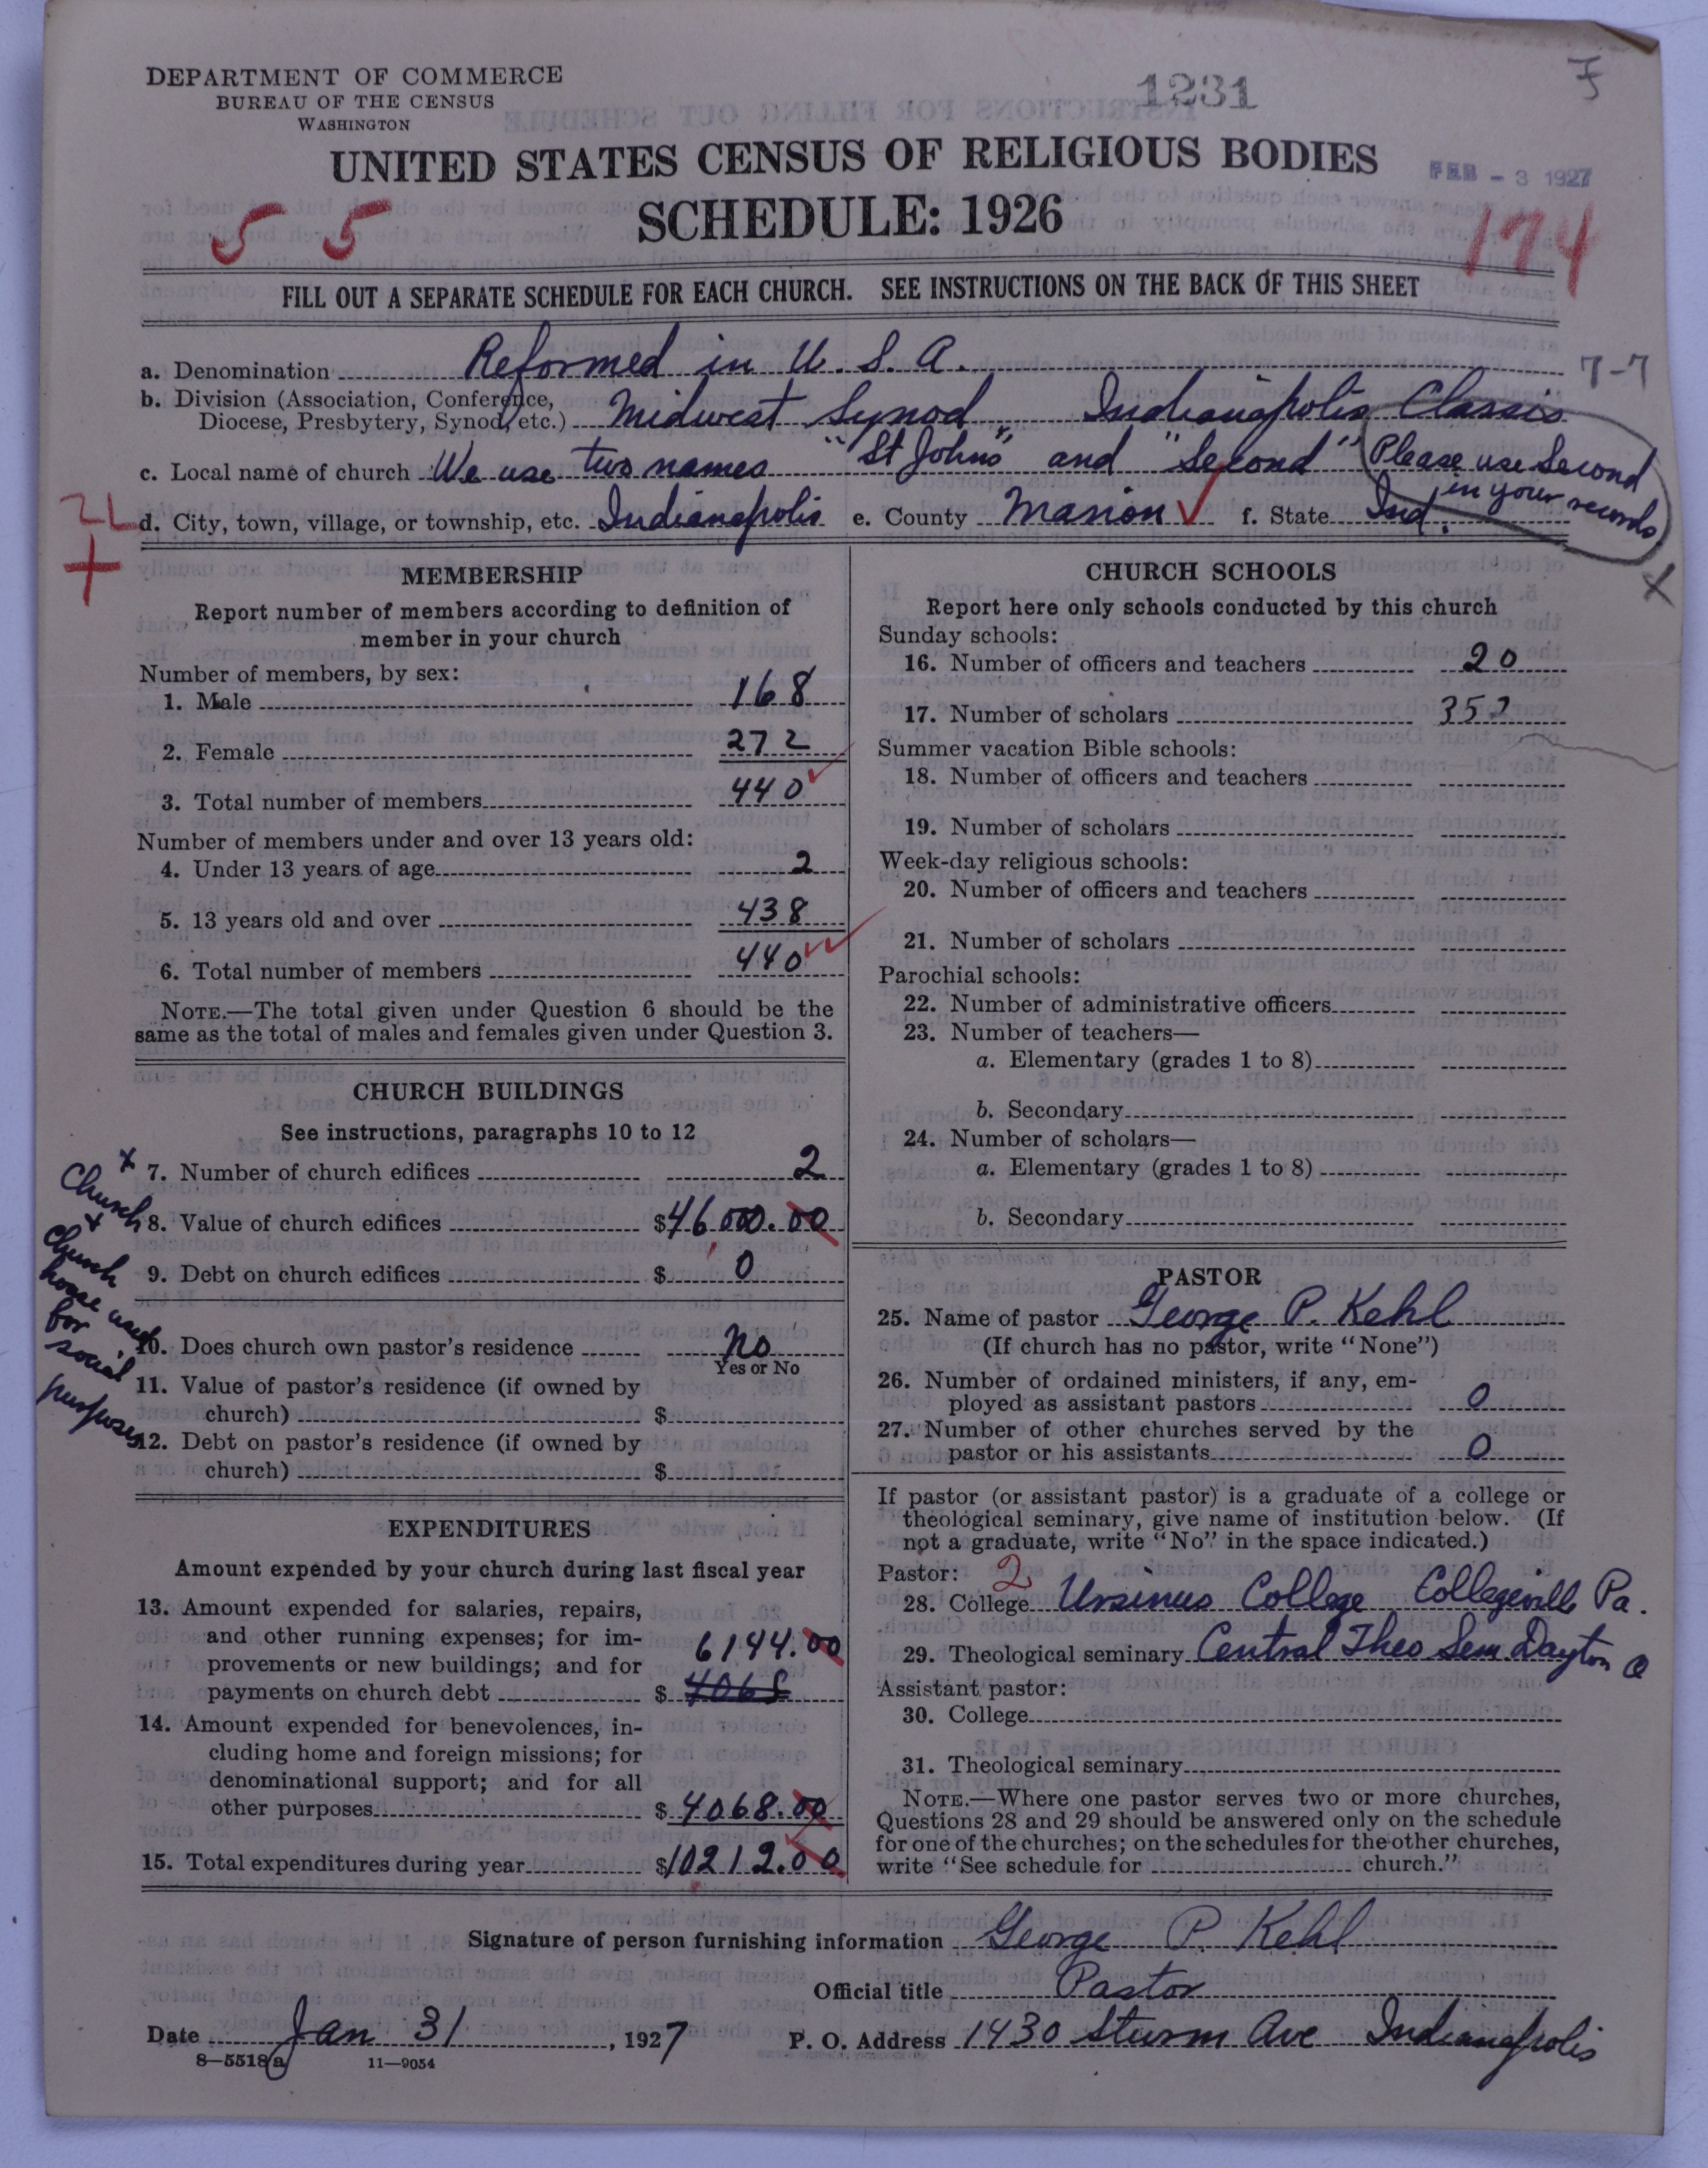 DEPARTMENT OF COMMERCE
BUREAU OF THE CENSUS
WASHINGTON
1231
7
UNITED STATES CENSUS OF RELIGIOUS BODIES
FEB - 3 1927
5 5
SCHEDULE: 1926
174
FILL OUT A SEPARATE SCHEDULE FOR EACH CHURCH. SEE INSTRUCTIONS ON THE BACK OF THIS SHEET
a. Denomination Reformed in U. S. A.
7-7
b. Division (Association, Conference,
Diocese, Presbytery, Synod, etc.) Midwest Synod Indianapolis Classis
c. Local name of church We use two names "St Johns" and "Second" Please use Second
in your records
d. City, town, village, or township, etc. Indianapolis e. County Marion ✓ f. State Ind.
MEMBERSHIP
Report number of members according to definition of
member in your church
Number of members, by sex:
1. Male 168
2. Female 272
3. Total number of members 440
Number of members under and over 13 years old:
4. Under 13 years of age 2
5. 13 years old and over 438
6. Total number of members 440
NOTE.—The total given under Question 6 should be the
same as the total of males and females given under Question 3.
CHURCH BUILDINGS
See instructions, paragraphs 10 to 12
x 7. Number of church edifices 2
8. Value of church edifices $46,000.00
9. Debt on church edifices $ 0
Church
+
Church
house used
for
social
purposes
10. Does church own pastor's residence no
Yes or No
11. Value of pastor's residence (if owned by
church) $
12. Debt on pastor's residence (if owned by
church) $
EXPENDITURES
Amount expended by your church during last fiscal year
13. Amount expended for salaries, repairs,
and other running expenses; for im-
provements or new buildings; and for 6144.00
payments on church debt $ 4068
14. Amount expended for benevolences, in-
cluding home and foreign missions; for
denominational support; and for all
other purposes $ 4068.00
15. Total expenditures during year $10212.00
CHURCH SCHOOLS
Report here only schools conducted by this church
Sunday schools:
16. Number of officers and teachers 20
17. Number of scholars 352
Summer vacation Bible schools:
18. Number of officers and teachers
19. Number of scholars
Week-day religious schools:
20. Number of officers and teachers
21. Number of scholars
Parochial schools:
22. Number of administrative officers
23. Number of teachers—
a. Elementary (grades 1 to 8)
b. Secondary
24. Number of scholars—
a. Elementary (grades 1 to 8)
b. Secondary
PASTOR
25. Name of pastor George P. Kehl
(If church has no pastor, write "None")
26. Number of ordained ministers, if any, em-
ployed as assistant pastors 0
27. Number of other churches served by the
pastor or his assistants 0
If pastor (or assistant pastor) is a graduate of a college or
theological seminary, give name of institution below. (If
not a graduate, write "No" in the space indicated.)
Pastor: 2
28. College Ursinus College Collegeville Pa.
29. Theological seminary Central Theo Sem Dayton O
Assistant pastor:
30. College
31. Theological seminary
NOTE.—Where one pastor serves two or more churches,
Questions 28 and 29 should be answered only on the schedule
for one of the churches; on the schedules for the other churches,
write "See schedule for church."
Signature of person furnishing information George P. Kehl
Official title Pastor
Date Jan 31, 1927 P. O. Address 1430 Sturm Ave Indianapolis
8—5518a 11—9054